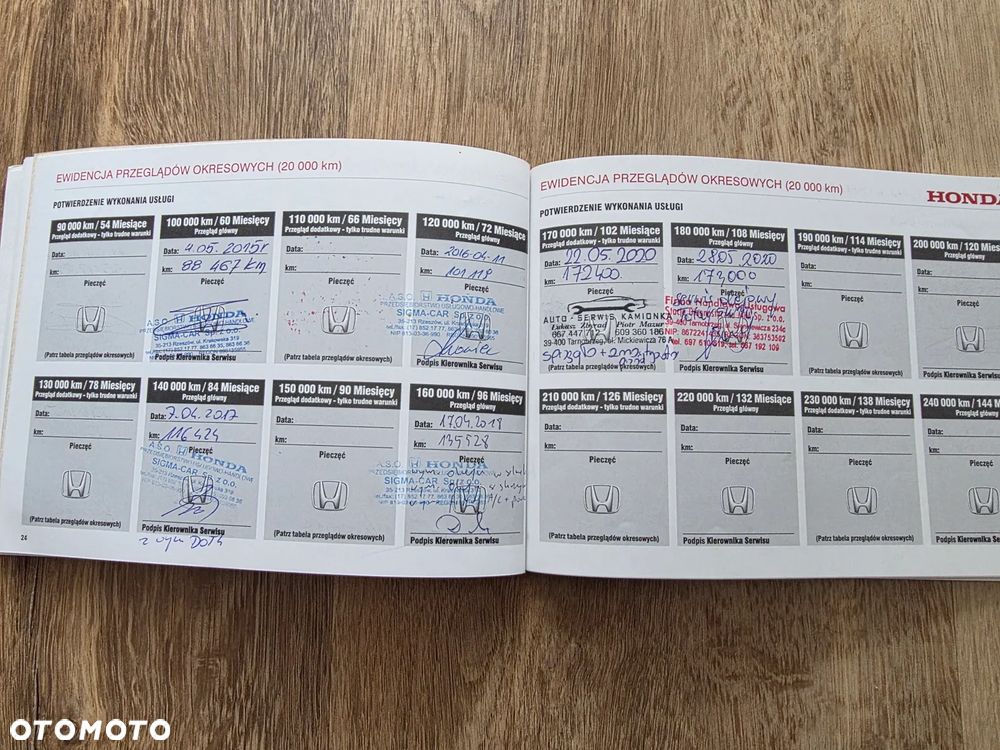 EWIDENCJA PRZEGLĄDÓW OKRESOWYCH (20 000 km)
POTWIERDZENIE WYKONANIA USŁUGI
90 000 km / 54 Miesiące
Przegląd dodatkowy - tylko trudne warunki
Data:
km:
Pieczęć
(Patrz tabela przeglądów okresowych)
100 000 km / 60 Miesięcy
Przegląd główny
Data: 4.05.2015r
km: 88 467 km
Pieczęć
A.S.O. HONDA
PRZEDSIĘBIORSTWO USŁUGOWO HANDLOWE
SIGMA-CAR Sp. z o.o.
35-213 Rzeszów, ul. Krakowska 319
Podpis Kierownika Serwisu
110 000 km / 66 Miesięcy
Przegląd dodatkowy - tylko trudne warunki
Data:
km:
Pieczęć
(Patrz tabela przeglądów okresowych)
120 000 km / 72 Miesiące
Przegląd główny
Data: 2016-04-11
km: 101 119
Pieczęć
A.S.O. HONDA
PRZEDSIĘBIORSTWO USŁUGOWO HANDLOWE
SIGMA-CAR Sp. z o.o.
35-213 Rzeszów, ul. Krakowska 319
Podpis Kierownika Serwisu
130 000 km / 78 Miesięcy
Przegląd dodatkowy - tylko trudne warunki
Data:
km:
Pieczęć
(Patrz tabela przeglądów okresowych)
140 000 km / 84 Miesiące
Przegląd główny
Data: 7.04.2017
km: 116 424
Pieczęć
A.S.O. HONDA
PRZEDSIĘBIORSTWO USŁUGOWO HANDLOWE
SIGMA-CAR Sp. z o.o.
35-213 Rzeszów, ul. Krakowska 319
Podpis Kierownika Serwisu
z wym DOT4
150 000 km / 90 Miesięcy
Przegląd dodatkowy - tylko trudne warunki
Data:
km:
Pieczęć
(Patrz tabela przeglądów okresowych)
160 000 km / 96 Miesięcy
Przegląd główny
Data: 17.04.2018
km: 134528
Pieczęć
A.S.O. HONDA
SIGMA-CAR Sp. z o.o.
Podpis Kierownika Serwisu
24
EWIDENCJA PRZEGLĄDÓW OKRESOWYCH (20 000 km)
HONDA
POTWIERDZENIE WYKONANIA USŁUGI
170 000 km / 102 Miesiące
Przegląd dodatkowy - tylko trudne warunki
Data: 22.05.2020
km: 172400
Pieczęć
AUTO-SERWIS KAMIONKA
Łukasz Zbyrad Piotr Mazur
667 447 712 609 360 186
39-400 Tarnobrzeg, ul. Mickiewicza 76 A
(Patrz tabela przeglądów okresowych)
180 000 km / 108 Miesięcy
Przegląd główny
Data: 28.05 2020
km: 173000
Pieczęć
serwis olejowy
Firma Handlowo-Usługowa
39-400 Tarnobrzeg, ul. Sienkiewicza 234c
Podpis Kierownika Serwisu
190 000 km / 114 Miesięcy
Przegląd dodatkowy - tylko trudne warunki
Data:
km:
Pieczęć
(Patrz tabela przeglądów okresowych)
200 000 km / 120 Mies
Przegląd główny
Data:
km:
Pieczęć
Podpis Kierownika Serwisu
210 000 km / 126 Miesięcy
Przegląd dodatkowy - tylko trudne warunki
Data:
km:
Pieczęć
(Patrz tabela przeglądów okresowych)
220 000 km / 132 Miesiące
Przegląd główny
Data:
km:
Pieczęć
Podpis Kierownika Serwisu
230 000 km / 138 Miesięcy
Przegląd dodatkowy - tylko trudne warunki
Data:
km:
Pieczęć
(Patrz tabela przeglądów okresowych)
240 000 km / 144 M
Przegląd główny
Data:
km:
Pieczęć
Podpis Kierownika Ser
OTOMOTO